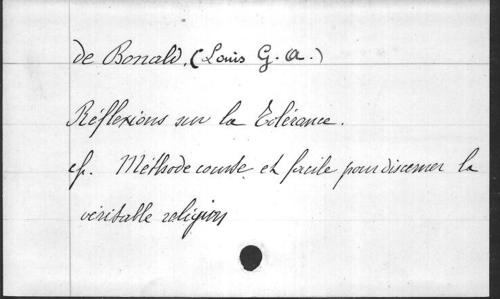 de Bonald, (Louis G. A.)
Réflexions sur la Tolérance.
cf. Méthode courte et facile pour discerner la
véritable religion